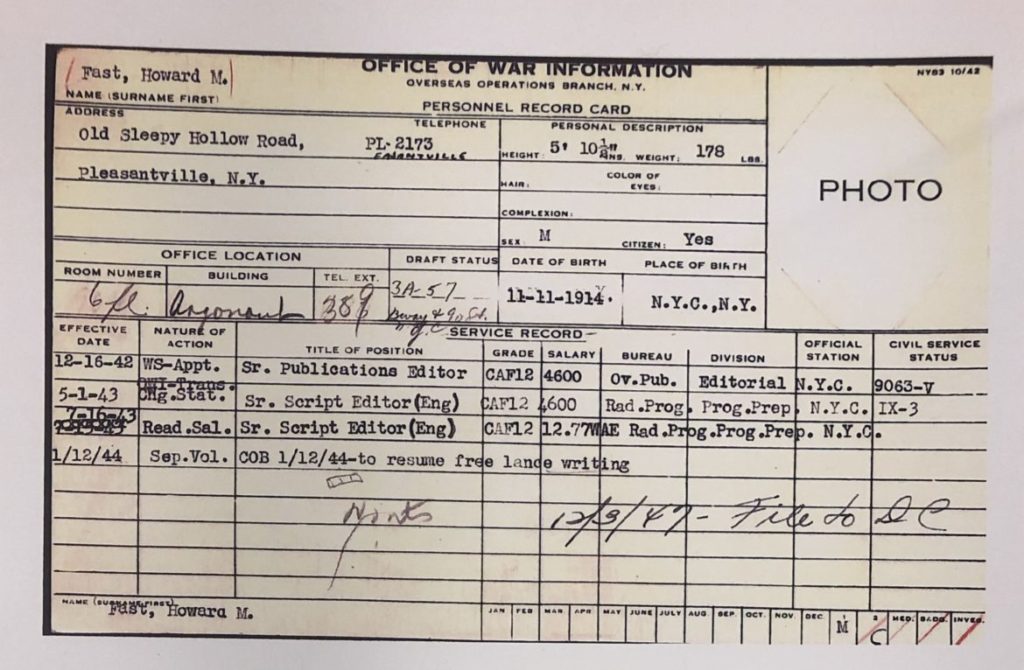 Fast, Howard M.
NAME (SURNAME FIRST)
OFFICE OF WAR INFORMATION
OVERSEAS OPERATIONS BRANCH, N.Y.
PERSONNEL RECORD CARD
NYB3 10/42
ADDRESS
TELEPHONE
Old Sleepy Hollow Road, PL-2173
Pleasantville, N.Y.
PERSONAL DESCRIPTION
HEIGHT: 5' 10½" INS. WEIGHT: 178 LBS.
HAIR: COLOR OF EYES:
COMPLEXION:
SEX: M CITIZEN: Yes
PHOTO
OFFICE LOCATION
DRAFT STATUS DATE OF BIRTH PLACE OF BIRTH
ROOM NUMBER BUILDING TEL. EXT.
6 fl. Argonaut 389 3A-57 11-11-1914. N.Y.C.,N.Y.
SERVICE RECORD
EFFECTIVE DATE NATURE OF ACTION TITLE OF POSITION GRADE SALARY BUREAU DIVISION OFFICIAL STATION CIVIL SERVICE STATUS
12-16-42 WS-Appt. Sr. Publications Editor CAF12 4600 Ov.Pub. Editorial N.Y.C. 9063-V
OWI-Trans.
5-1-43 Chg.Stat. Sr. Script Editor(Eng) CAF12 4600 Rad.Prog. Prog.Prep. N.Y.C. IX-3
7-16-43 Read.Sal. Sr. Script Editor(Eng) CAF12 12.77WAE Rad.Prog.Prog.Prep. N.Y.C.
1/12/44 Sep.Vol. COB 1/12/44-to resume free lance writing
12/3/47 - File to DC
NAME (SURNAME FIRST)
Fast, Howard M.
JAN FEB MAR APR MAY JUNE JULY AUG. SEP. OCT. NOV. DEC. M C MED. BADG. INVES.